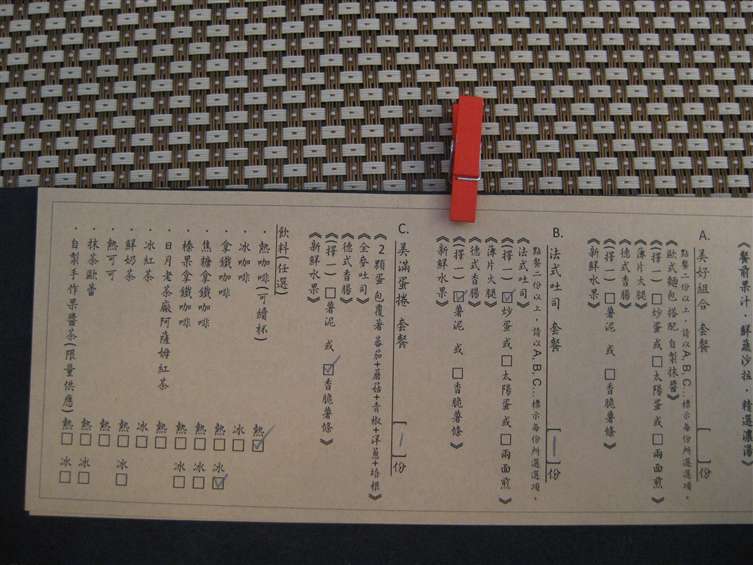 餐前果汁．鮮蔬沙拉．精選濃湯
A. 美好組合 套餐 [ ]份
點餐二份以上，請以A,B,C..標示每份所選選項。
《歐式麵包搭配 自製抹醬》
《(擇一)□炒蛋或□太陽蛋或□兩面煎》
《薄片火腿》
《德式香腸》
《(擇一)□薯泥 或 □香脆薯條》
《新鮮水果》
B. 法式吐司 套餐 [一]份
點餐二份以上，請以A,B,C..標示每份所選選項。
《法式吐司》
《(擇一)☑炒蛋或□太陽蛋或□兩面煎》
《薄片火腿》
《德式香腸》
《(擇一)☑薯泥 或 □香脆薯條》
《新鮮水果》
C. 美滿蛋捲 套餐 [一]份
《2顆蛋包覆著 蕃茄+蘑菇+青椒+洋蔥+培根》
《全麥吐司》
《德式香腸》
《(擇一)□薯泥 或 ☑香脆薯條》
《新鮮水果》
飲料(任選)
．熱咖啡(可續杯) 熱☑
．冰咖啡 冰□
．拿鐵咖啡 熱□ 冰☑
．焦糖拿鐵咖啡 熱□ 冰□
．榛果拿鐵咖啡 熱□ 冰□
．日月老茶廠阿薩姆紅茶 熱□
．冰紅茶 冰□
．鮮奶茶 熱□ 冰□
．熱可可 熱□
．抹茶歐蕾 熱□ 冰□
．自製手作果醬茶(限量供應) 熱□ 冰□